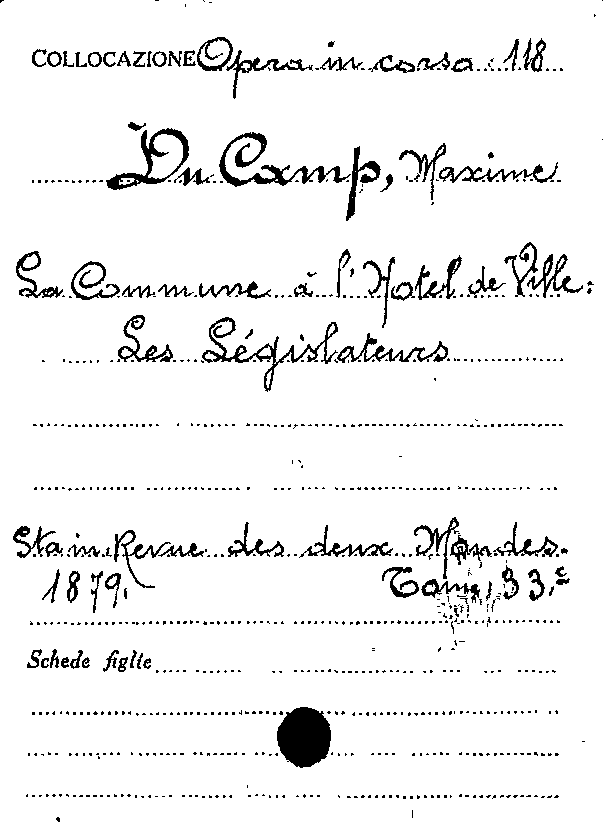 COLLOCAZIONE Opera in corso 118
Du Camp, Maxime
La Commune à l'Hotel de Ville:
Les Législateurs
Sta in Revue des deux Mondes.
1879. Tom. 33.e
Schede figlie